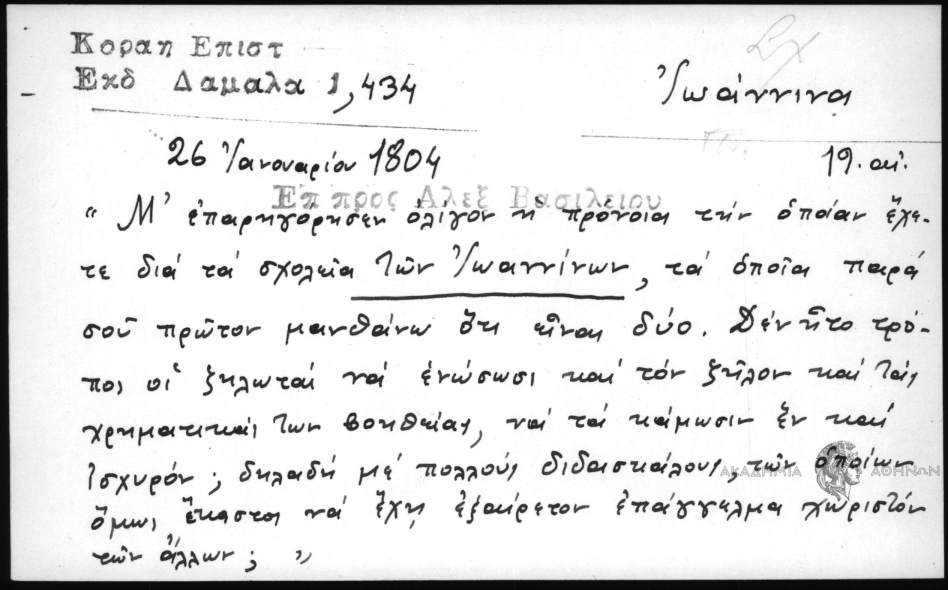 Κοραη Επιστ
Εκδ Δαμαλα 1,434
Ἰωάννινα
26 Ἰανουαρίου 1804
19. αἰ.
Επ προς Αλεξ Βασιλειου
„ Μ' ἐπαρηγόρησεν ὀλίγον ἡ πρόνοια τήν ὁποίαν ἔχε-
τε διά τά σχολεῖα τῶν Ἰωαννίνων, τά ὁποῖα παρά
σοῦ πρῶτον μανθάνω ὅτι εἶναι δύο. Δέν ἦτο τρό-
πος οἱ ζηλωταί νά ἑνώσωσι καί τόν ζῆλον καί τάς
χρηματικάς των βοηθείας, νά τά κάμωσιν ἕν καί
ἰσχυρόν; δηλαδή μέ πολλούς διδασκάλους, τῶν ὁποίων
ὅμως ἕκαστος νά ἔχῃ ἐξαίρετον ἐπάγγελμα χωριστόν
τῶν ἄλλων; „
ΑΚΑΔΗΜΙΑ ΑΘΗΝΩΝ